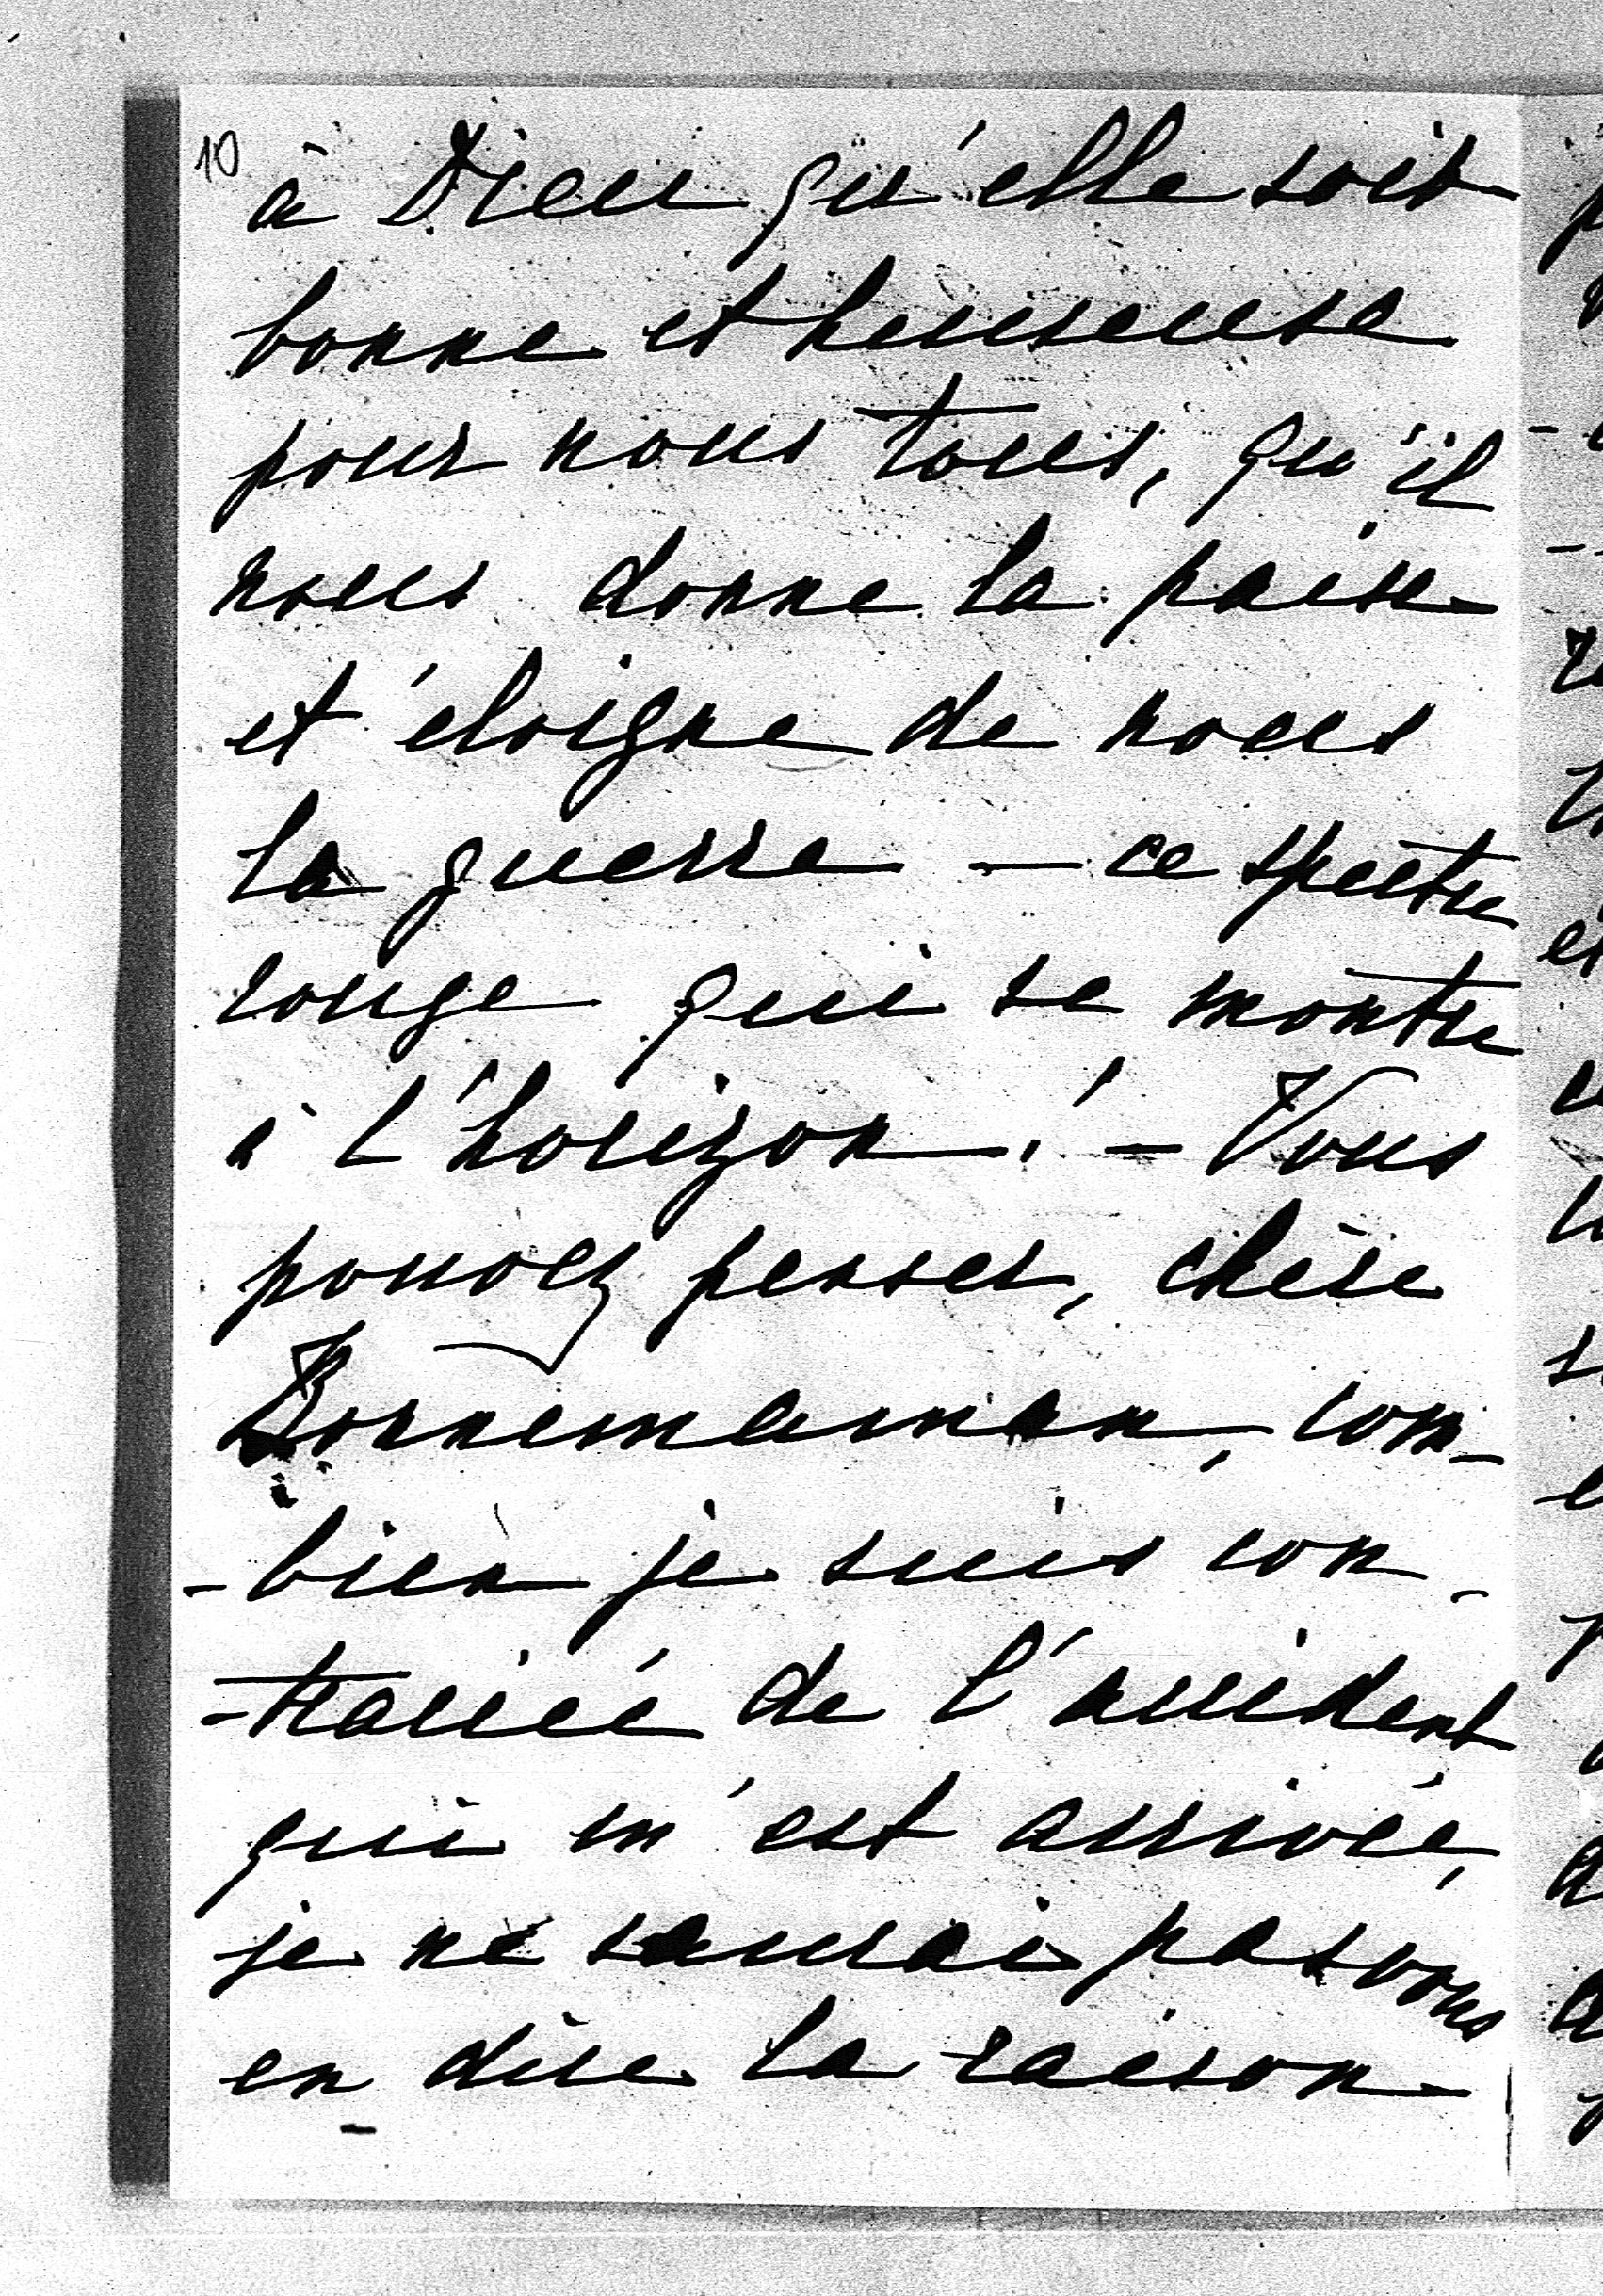 10
à Dieu qu'elle soit
bonne et heureuse
pour nous tous, qu'il
nous donne la paix
et éloigne de nous
la guerre — ce spectre
rouge qui se montre
à l'horizon! — Vous
pouvez penser, chère
Bornemannn, com-
-bien je suis con-
-trariée de l'accident
qui m'est arrivée,
je ne saurai pas vous
en dire la raison